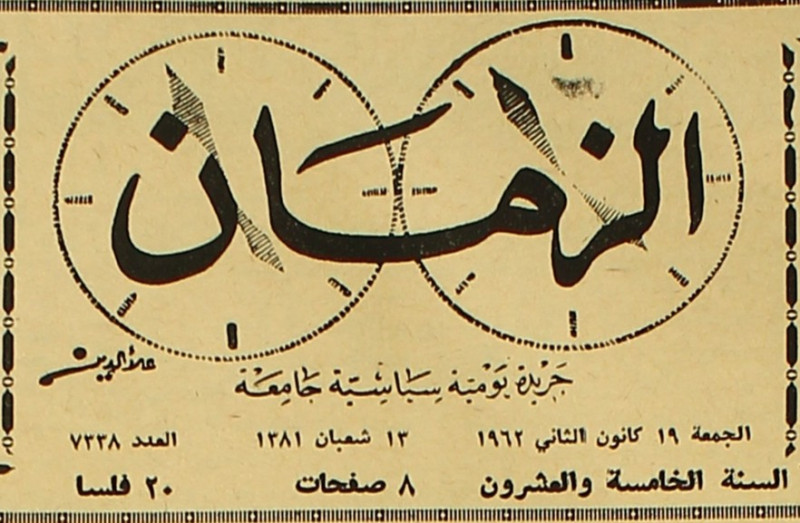 الزمان
علاءالدين
جريدة يومية سياسية جامعة
الجمعة ١٩ كانون الثاني ١٩٦٢ ١٣ شعبان ١٣٨١ العدد ٧٣٣٨
السنة الخامسة والعشرون ٨ صفحات ٢٠ فلسا